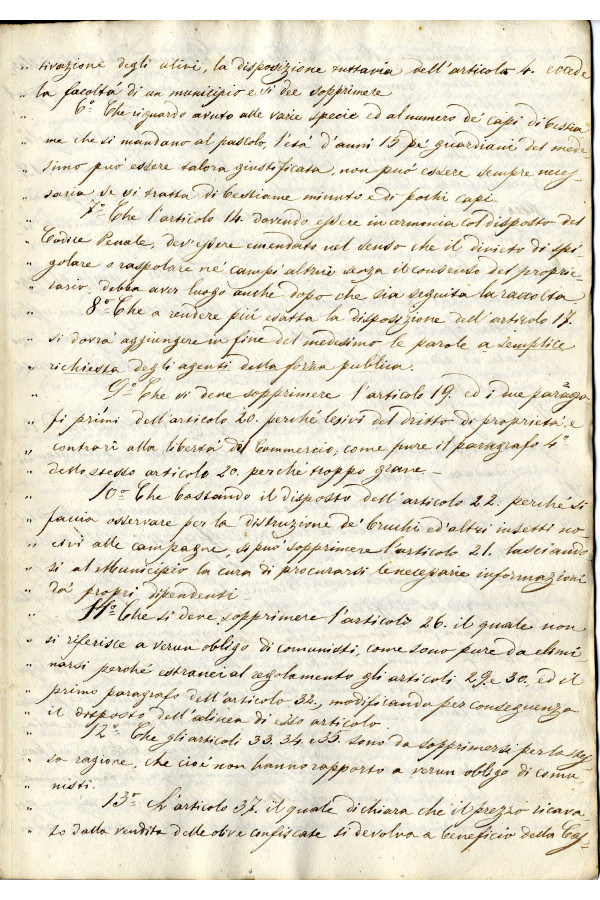 „ tivazione degli ulivi, la disposizione tuttavia dell'articolo 4. eccede
„ la facoltá di un municipio e si dee sopprimere
„ 6.° Che riguardo avuto alle varie specie ed al numero de' capi di bestia
„ me che si mandano al pascolo, l'etá d'anni 15 pe' guardiani del mede
„ simo puó essere talora giustificata, non puó essere sempre neces
„ saria se si tratta di bestiame minuto e di pochi capi.
„ 7.° Che l'articolo 14. dovendo essere in armonia col disposto del
„ Codice Penale, dev'essere emendato nel senso che il divieto di spi
„ golare o raspolare né campi altrui senza il consenso del proprie
„ tario, debba aver luogo anche dopo che sia seguita la raccolta
„ 8.° Che a rendere piú esatta la disposizione dell'articolo 17.
„ si dovrá aggiungere in fine del medesimo le parole a semplice
„ richiesta degli agenti della forza pubblica.
„ 9.° Che si deve sopprimere l'articolo 19. ed i due paragra
„ fi primi dell'articolo 20. perché lesivi del dritto di proprietá, e
„ contrarî alla libertá del Commercio, come pure il paragrafo 4.°
„ dello stesso articolo 20. perché troppo grave.
„ 10.° Che bastando il disposto dell'articolo 22. perché si
„ faccia osservare per la distruzione de' bruchi ed altri insetti no
„ civi alle campagne, si puó sopprimere l'articolo 21. lasciando
„ si al Municipio la cura di procurarsi le necessarie informazioni
„ da' propri dipendenti.
„ 11.° Che si deve sopprimere l'articolo 26. il quale non
„ si riferisce a verun obligo di comunisti, come sono pure da elimi
„ narsi perché estranei al regolamento gli articoli 29. e 30. ed il
„ primo paragrafo dell'articolo 32, modificando per conseguenza
„ il disposto dell'alinea di esso articolo.
„ 12.° Che gli articoli 33. 34. e 35. sono da sopprimersi per la stes
„ sa ragione, che cioé non hanno rapporto a verun obligo di comu
„ nisti.
„ 13.° L'articolo 37. il quale dichiara che il prezzo ricava
„ to dalla vendita delle olive confiscate si devolva a beneficio della Cas-